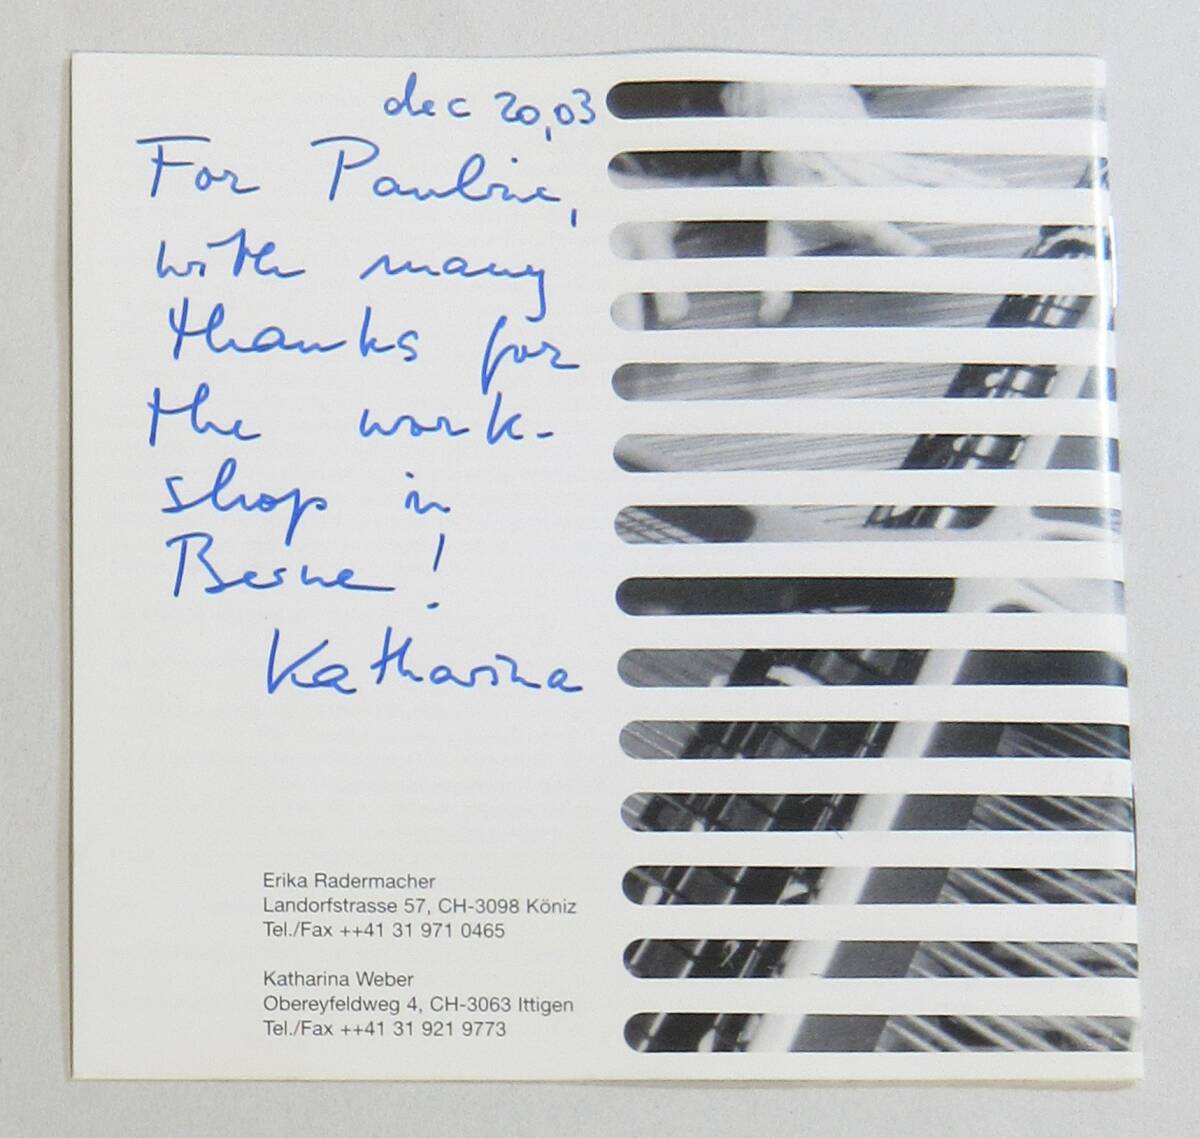 dec 20,03
For Pauline,
with many
thanks for
the work-
shop in
Berne!
Katharina
Erika Radermacher
Landorfstrasse 57, CH-3098 Köniz
Tel./Fax ++41 31 971 0465
Katharina Weber
Obereyfeldweg 4, CH-3063 Ittigen
Tel./Fax ++41 31 921 9773